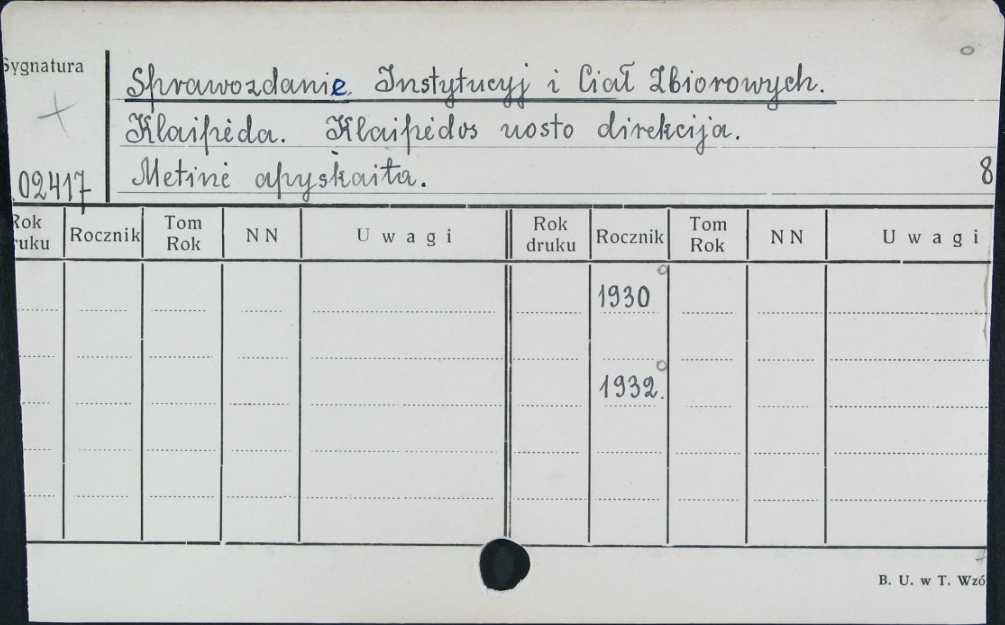 Sygnatura
Sprawozdanie Instytucyj i Ciał Zbiorowych.
Klaipėda. Klaipėdos uosto direkcija.
02417
Metinė apyskaita.
8
Rok druku Rocznik Tom Rok NN Uwagi Rok druku Rocznik Tom Rok NN Uwagi
1930
1932.
B. U. w T. Wzó